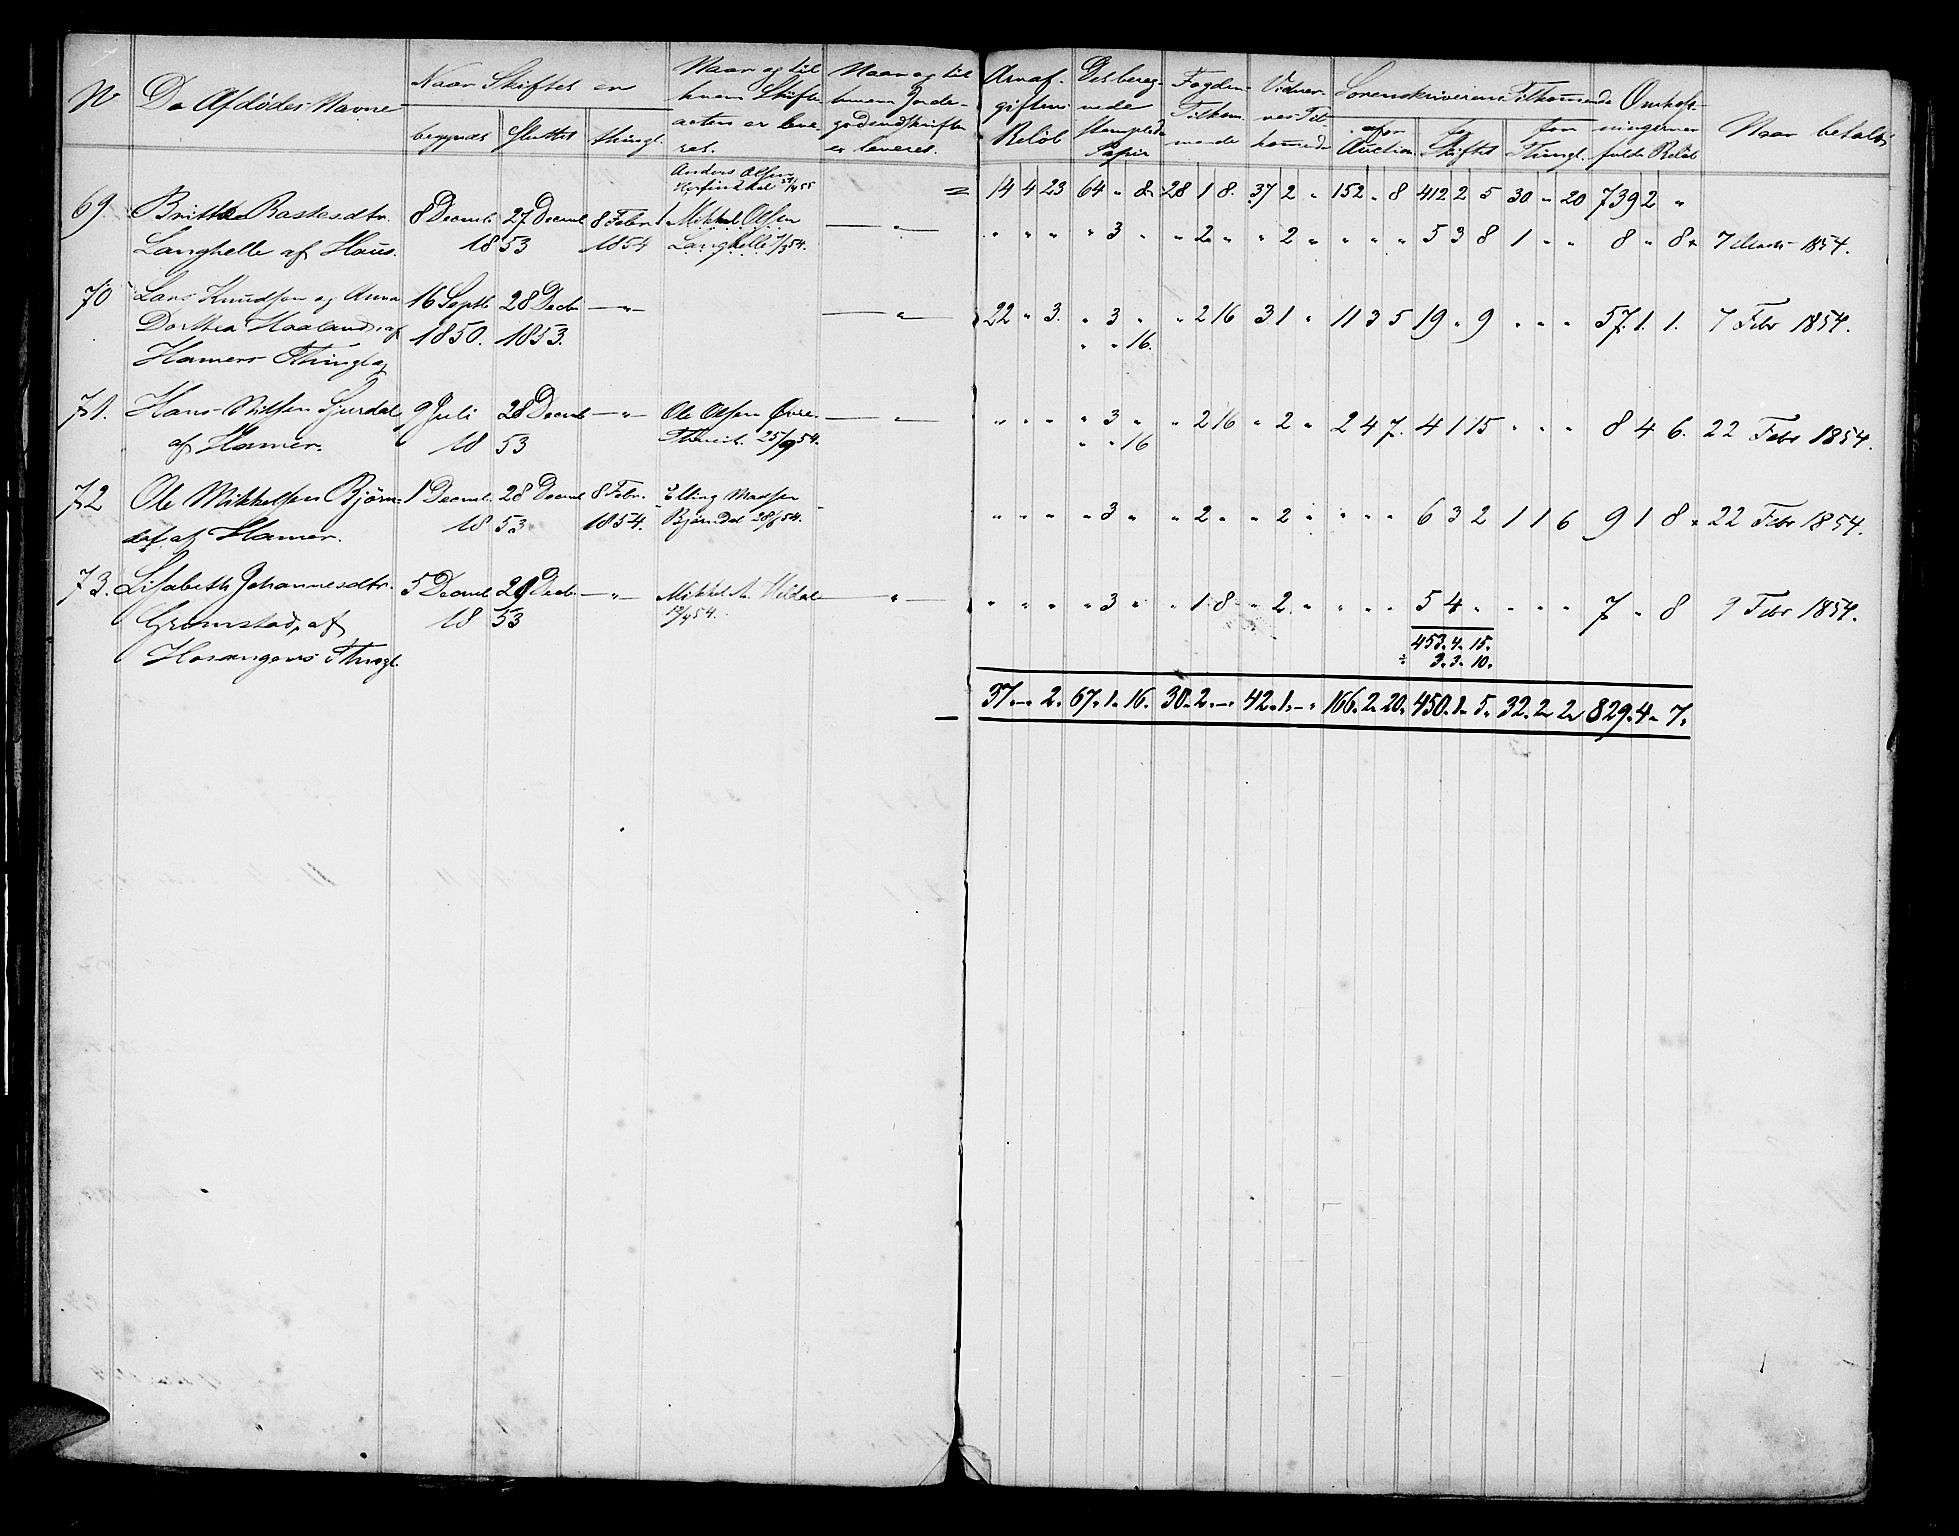 No De Afdødes Navne Naar Skiftet er Naar og til Naar og til Arvaf- Det bereg- Fogdens Vidner- Sorenskriverens Tilkommende Omkost-
hvem Skifte- hvem Jorde- giftens nede Tilkom- nes Til- ningernes Naar betalt
begyndt Sluttet thingl. acten er leve- godsudskriften Beløb stemplede mende kommende for Auction for Skiftet for Thingl. fulde Beløb
ret. er leveret. Papir
Anders Olsen
= 14 4 23 64 " 8 28 1 8 37 2 " 152 " 8 412 2 5 30 " 20 739 2 "
69. Britthe Rastesdtr. 8 Decmb. 27 Decmb. 8 Febr. Mikkel Olsen — " —
Langhelle af Haus. 18 53 1854 Langhelle 7/3 54. " " " " 3 " " 2 " " 2 " " " " 5 3 8 1 " " 8 " 8 7 Marts 1854.
70 Lars Knudsen og Anna 16 Septb. 28 Decb. — " — — " —
Dorthea Haaland, af 1850. 1853. 22 " 3. " 3 " " 2 16 3 1 " 11 3 5 19 " 9 " " " 57. 1. 1. 7 Febr 1854.
Hamers Thinglag " " 16.
71. Hans Nilsen Gjerdal 9 Juli 28 Decmb. — " — Ole Olsen Øvre — " —
af Hamer. 18 53 Thveit. 25/9 54. " " " " 3 " " 2 16 " 2 " 2 4 7. 4 1 15 " " " 8 4 6. 22 Febr 1854.
" " 16
72 Ole Mikkelsen Bjørn- 1 Decmb. 28 Decmb. 8 Febr. Elling Madsen
dal af Hamer. 18 53 1854. Bjørndal 28/6 54. " " " " 3 " " 2 " " 2 " " " " 6 3 2 1 1 6 9 1 8 22 Febr 1854.
73. Lisabeth Johannesdtr. 5 Decmb. 29 Decb. — " — Mikkel A. Vildal — " —
Grimstad, af 18 53 " " " " 3 " " 1 8 " 2 " " " " 5 4 " " " " 7 " 8 9 Febr 1854.
Hosangers Thingl. 453. 4. 15.
÷ 3. 3. 10.
— 37. — 2. 67. 1. 16. 30. 2. — 42. 1. — 166. 2. 20. 450. 1. 5. 32. 2. 2. 829. 4. 7.